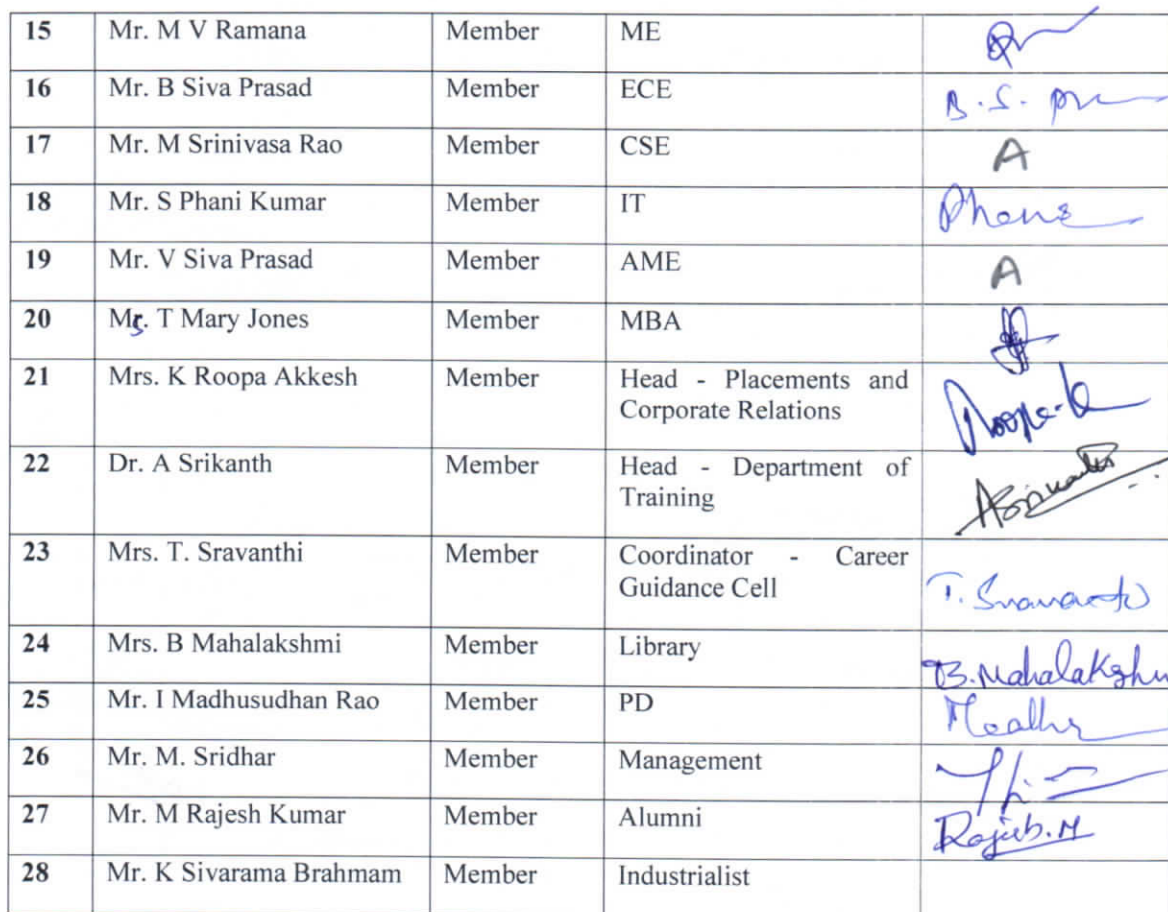 15 Mr. M V Ramana Member ME
16 Mr. B Siva Prasad Member ECE B.S. Pr
17 Mr. M Srinivasa Rao Member CSE A
18 Mr. S Phani Kumar Member IT
19 Mr. V Siva Prasad Member AME A
20 Ms. T Mary Jones Member MBA
21 Mrs. K Roopa Akkesh Member Head - Placements and
Corporate Relations Roopa-k
22 Dr. A Srikanth Member Head - Department of
Training
23 Mrs. T. Sravanthi Member Coordinator - Career
Guidance Cell
24 Mrs. B Mahalakshmi Member Library B.Mahalakshm
25 Mr. I Madhusudhan Rao Member PD
26 Mr. M. Sridhar Member Management
27 Mr. M Rajesh Kumar Member Alumni
28 Mr. K Sivarama Brahmam Member Industrialist